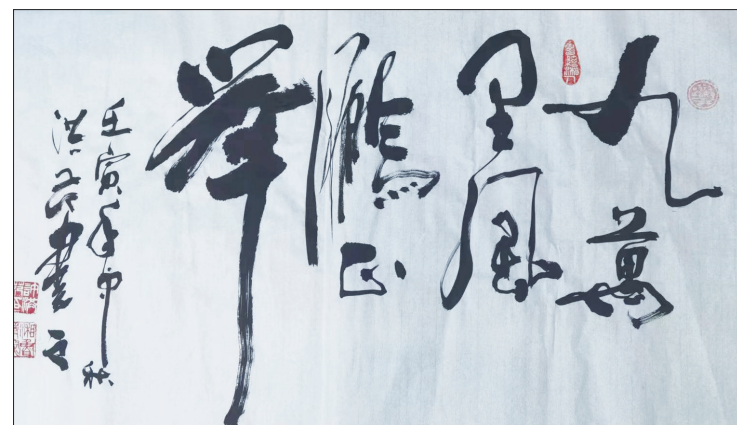 九萬
里風
鵬正
舉
壬寅年中秋
洪 書